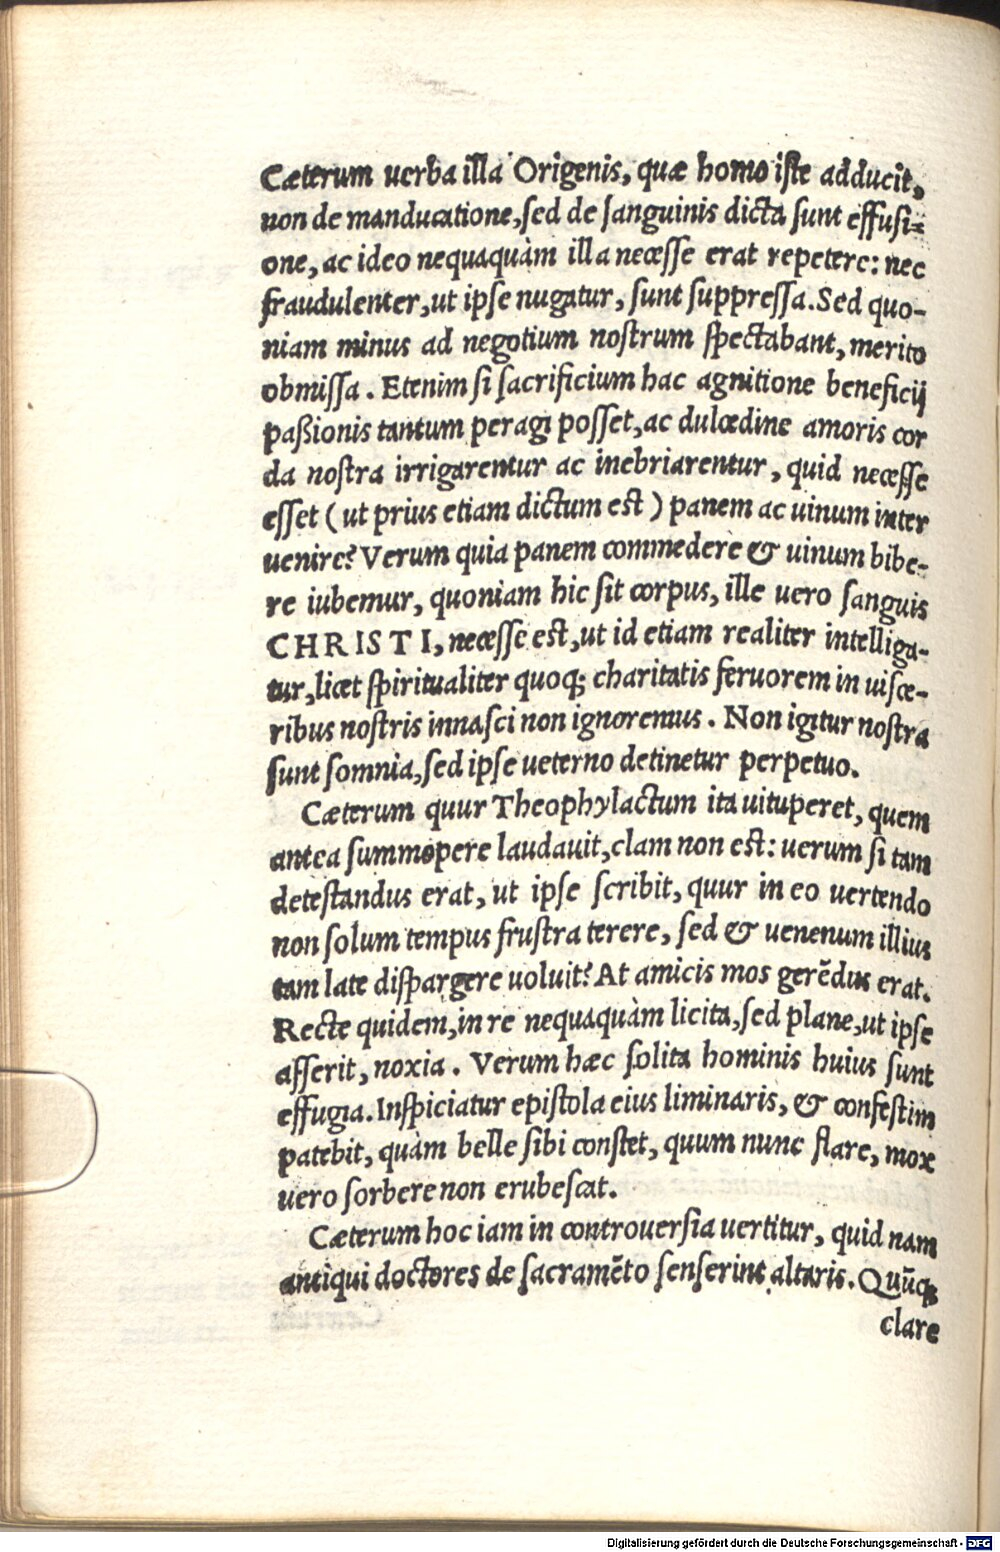 Cæterum uerba illa Origenis, quæ homo iſte adducit,
non de manducatione, ſed de ſanguinis dicta ſunt effuſi=
one, ac ideo nequaquàm illa neceſſe erat repetere: nec
fraudulenter, ut ipſe nugatur, ſunt ſuppreſſa. Sed quo-
niam minus ad negotium noſtrum ſpectabant, merito
obmiſſa. Etenim ſi ſacrificium hac agnitione beneficij
paßionis tantum peragi poſſet, ac dulcedine amoris cor
da noſtra irrigarentur ac inebriarentur, quid neceſſe
eſſet (ut prius etiam dictum eſt) panem ac uinum inter
uenire? Verum quia panem commedere & uinum bibe-
re iubemur, quoniam hic ſit corpus, ille uero ſanguis
CHRISTI, neceſſe eſt, ut id etiam realiter intelliga-
tur, licet ſpiritualiter quoq; charitatis feruorem in uiſce-
ribus noſtris innaſci non ignoremus. Non igitur noſtra
ſunt ſomnia, ſed ipſe ueterno detinetur perpetuo.
Cæterum quur Theophylactum ita uituperet, quem
antea ſummopere laudauit, clam non eſt: uerum ſi tam
deteſtandus erat, ut ipſe ſcribit, quur in eo uertendo
non ſolum tempus fruſtra terere, ſed & uenenum illius
tam late diſpargere uoluit? At amicis mos gerēdus erat.
Recte quidem, in re nequaquàm licita, ſed plane, ut ipſe
aſſerit, noxia. Verum hæc ſolita hominis huius ſunt
effugia. Inſpiciatur epiſtola eius liminaris, & confeſtim
patebit, quàm belle ſibi conſtet, quum nunc flare, mox
uero ſorbere non erubeſcat.
Cæterum hoc iam in controuerſia uertitur, quid nam
antiqui doctores de ſacramēto ſenſerint altaris. Quūq;
clare
Digitalisierung gefördert durch die Deutsche Forschungsgemeinschaft - DFG